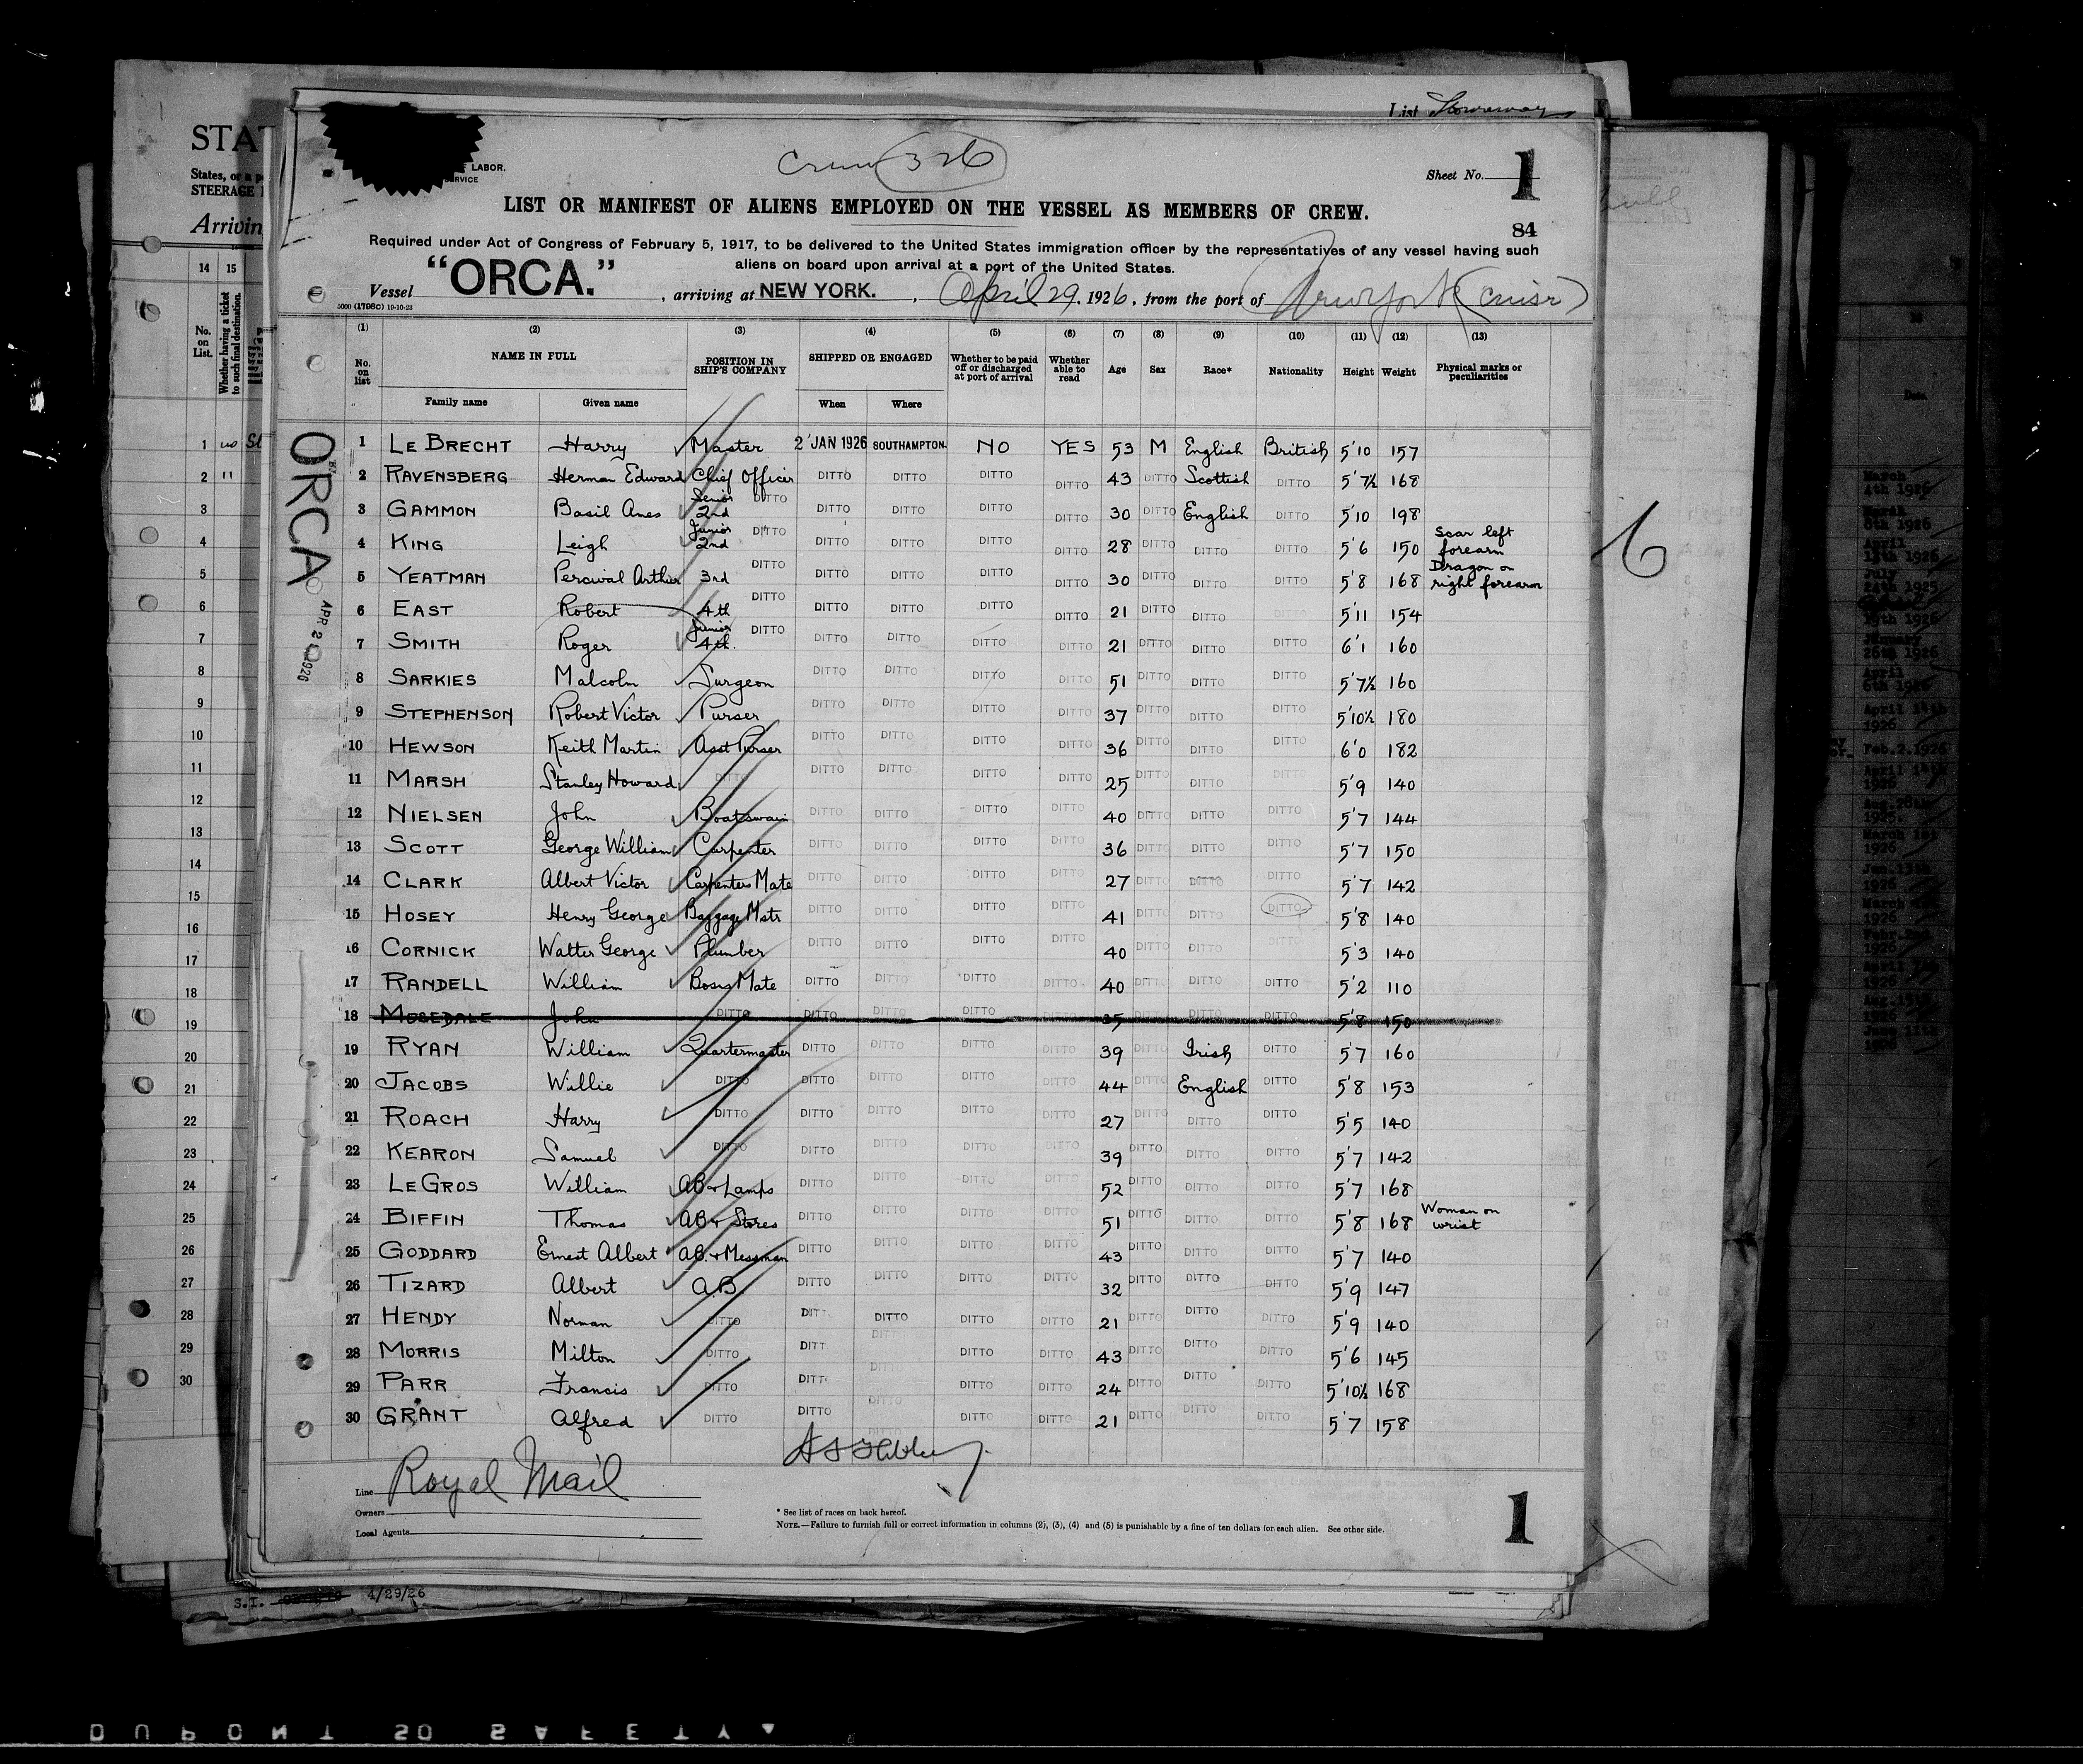 List Stowaway
STAT
States, or a p
STEERAGE
Arrivin
LABOR.
SERVICE
Crew 326
Sheet No. 1
LIST OR MANIFEST OF ALIENS EMPLOYED ON THE VESSEL AS MEMBERS OF CREW.
84
Required under Act of Congress of February 5, 1917, to be delivered to the United States immigration officer by the representatives of any vessel having such
aliens on board upon arrival at a port of the United States.
Vessel "ORCA.", arriving at NEW YORK., April 29, 1926, from the port of New York (cruise)
5000 (1798c) 19-10-23
(1) (2) (3) (4) (5) (6) (7) (8) (9) (10) (11) (12) (13)
No. on list NAME IN FULL POSITION IN SHIP'S COMPANY SHIPPED OR ENGAGED Whether to be paid off or discharged at port of arrival Whether able to read Age Sex Race* Nationality Height Weight Physical marks or peculiarities
Family name Given name When Where
ORCA
1 LE BRECHT Harry Master 2 JAN 1926 SOUTHAMPTON NO YES 53 M English British 5'10 157
2 RAVENSBERG Herman Edward Chief Officer DITTO DITTO DITTO DITTO 43 DITTO Scottish DITTO 5'7½ 168
3 GAMMON Basil Ames Senior 2nd DITTO DITTO DITTO DITTO DITTO 30 DITTO English DITTO 5'10 198
4 KING Leigh Junior 2nd DITTO DITTO DITTO DITTO DITTO 28 DITTO DITTO DITTO 5'6 150 Scar left forearm
5 YEATMAN Percival Arthur 3rd DITTO DITTO DITTO DITTO DITTO 30 DITTO DITTO DITTO 5'8 168 Dragon on right forearm
6 EAST Robert 4th DITTO DITTO DITTO DITTO DITTO 21 DITTO DITTO DITTO 5'11 154
7 SMITH Roger Junior 4th. DITTO DITTO DITTO DITTO DITTO 21 DITTO DITTO DITTO 6'1 160
8 SARKIES Malcolm Surgeon DITTO DITTO DITTO DITTO 51 DITTO DITTO DITTO 5'7½ 160
9 STEPHENSON Robert Victor Purser DITTO DITTO DITTO DITTO 37 DITTO DITTO DITTO 5'10½ 180
10 HEWSON Keith Martin Asst Purser DITTO DITTO DITTO DITTO 36 DITTO DITTO DITTO 6'0 182
11 MARSH Stanley Howard DITTO DITTO DITTO DITTO DITTO 25 DITTO DITTO DITTO 5'9 140
12 NIELSEN John Boatswain DITTO DITTO DITTO DITTO 40 DITTO DITTO DITTO 5'7 144
13 SCOTT George William Carpenter DITTO DITTO DITTO DITTO 36 DITTO DITTO DITTO 5'7 150
14 CLARK Albert Victor Carpenters Mate DITTO DITTO DITTO DITTO 27 DITTO DITTO DITTO 5'7 142
15 HOSEY Henry George Baggage Mstr DITTO DITTO DITTO DITTO 41 DITTO DITTO DITTO 5'8 140
16 CORNICK Walter George Plumber DITTO DITTO DITTO DITTO 40 DITTO DITTO 5'3 140
17 RANDELL William Bosns Mate DITTO DITTO DITTO DITTO 40 DITTO DITTO DITTO 5'2 110
18 MOSEDALE John DITTO DITTO DITTO DITTO DITTO 35 DITTO DITTO DITTO 5'8 150
19 RYAN William Quartermaster DITTO DITTO DITTO DITTO 39 DITTO Irish DITTO 5'7 160
20 JACOBS Willie DITTO DITTO DITTO DITTO DITTO 44 DITTO English DITTO 5'8 153
21 ROACH Harry DITTO DITTO DITTO DITTO DITTO 27 DITTO DITTO DITTO 5'5 140
22 KEARON Samuel DITTO DITTO DITTO DITTO DITTO 39 DITTO DITTO DITTO 5'7 142
23 LEGROS William AB & Lamps DITTO DITTO DITTO DITTO 52 DITTO DITTO DITTO 5'7 168
24 BIFFIN Thomas AB & Stores DITTO DITTO DITTO DITTO 51 DITTO DITTO DITTO 5'8 168 Woman on wrist
25 GODDARD Ernest Albert AB. & Messman DITTO DITTO DITTO DITTO 43 DITTO DITTO DITTO 5'7 140
26 TIZARD Albert A.B. DITTO DITTO DITTO DITTO 32 DITTO DITTO DITTO 5'9 147
27 HENDY Norman DITTO DITTO DITTO DITTO DITTO 21 DITTO DITTO DITTO 5'9 140
28 MORRIS Milton DITTO DITT DITTO DITTO DITTO 43 DITTO DITTO DITTO 5'6 145
29 PARR Francis DITTO DITT DITTO DITTO DITTO 24 DITTO DITTO DITTO 5'10½ 168
30 GRANT Alfred DITTO DITTO DITTO DITTO DITTO 21 DITTO DITTO DITTO 5'7 158
Line Royal Mail
Owners
Local Agents
* See list of races on back hereof.
NOTE.—Failure to furnish full or correct information in columns (2), (3), (4) and (5) is punishable by a fine of ten dollars for each alien. See other side.
1
S.I. 4/29/26
6
DUPONT SO SAFETY